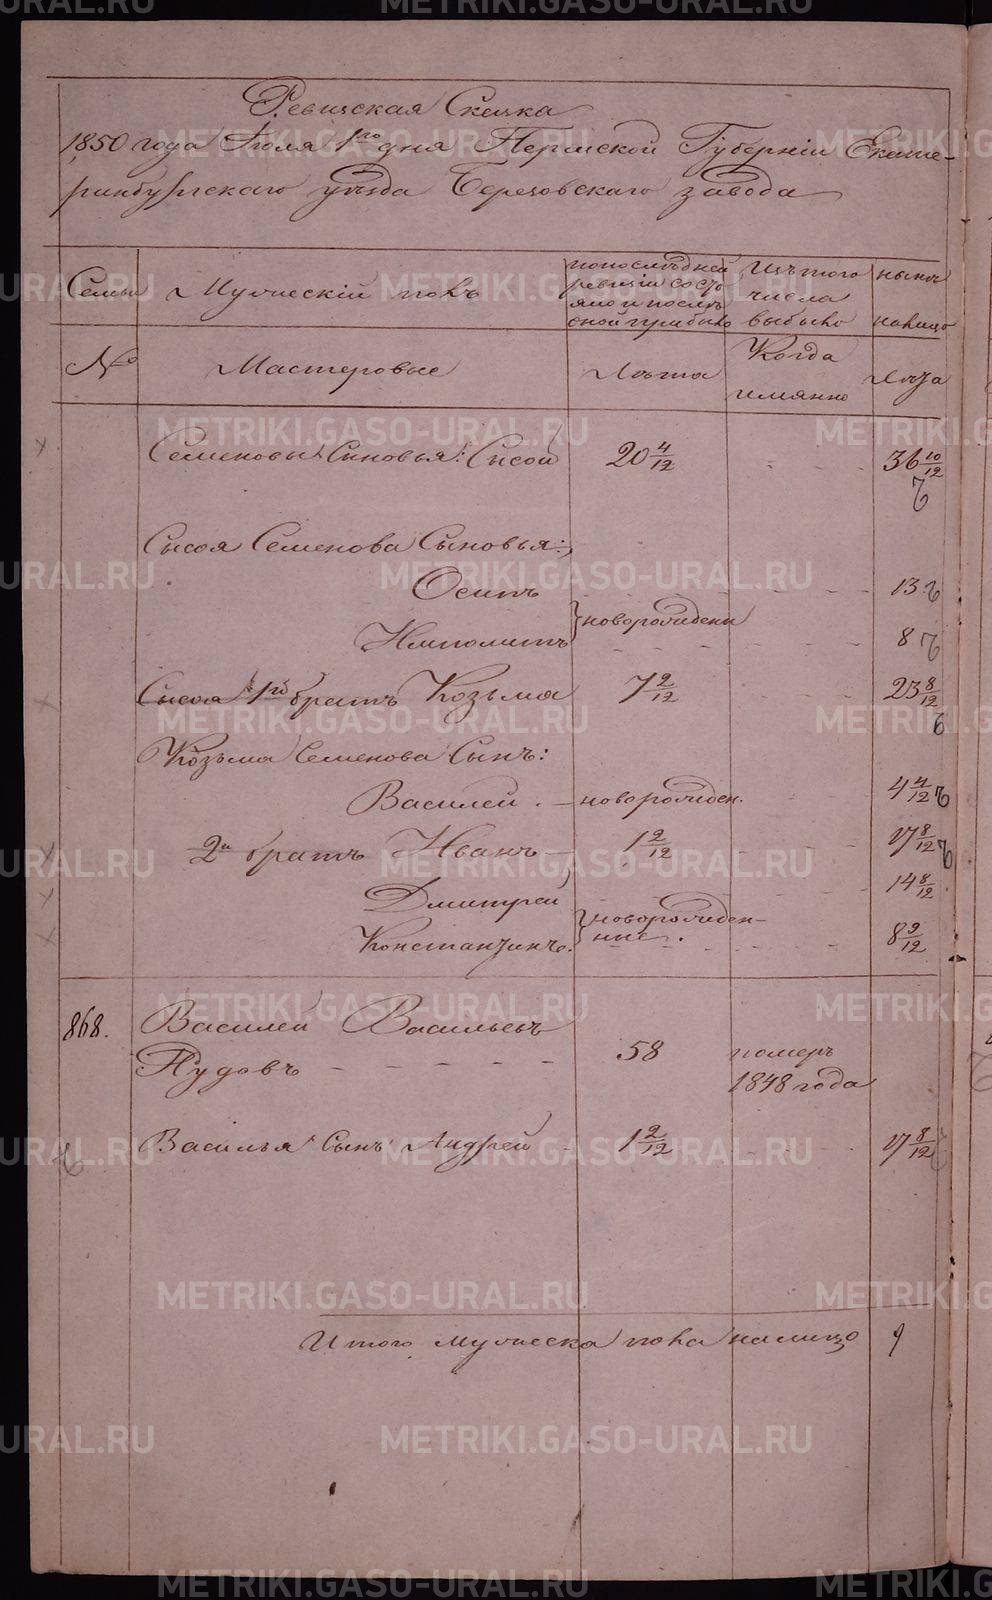 Ревизская Сказка
1850 года Июля 1го дня Пермской Губерніи Екате-
ринбургскаго уѣзда Березовскаго завода
Семьи
Мужескій полъ
по послѣдней
ревизіи состо
яло и послѣ
оной прибыло
Изъ того
числа
выбыло
нынѣ
налицо
№
Мастеровые
Лѣта
Когда
имянно
Лѣта
Семеновы Сыновья: Сысой 20 4/12 36 10/12
Сысоя Семенова Сыновья:
Осипъ 13
новорожденн
Ипполитъ 8
Сысоя 1й братъ Козьма 7 2/12 23 8/12
Козьма Семенова Сынъ:
Василей. новорожден. 4 4/12
2й братъ Иванъ 1 2/12 17 8/12
Дмитрей 14 8/12
новорожден-
ные.
Константинъ. 8 9/12
868. Василей Васильевъ
Пудовъ 58 померъ
1848 года
Василья Сынъ Андрей 1 2/12 17 8/12
Итого мужеска пола налицо 9
METRIKI.GASO-URAL.RU